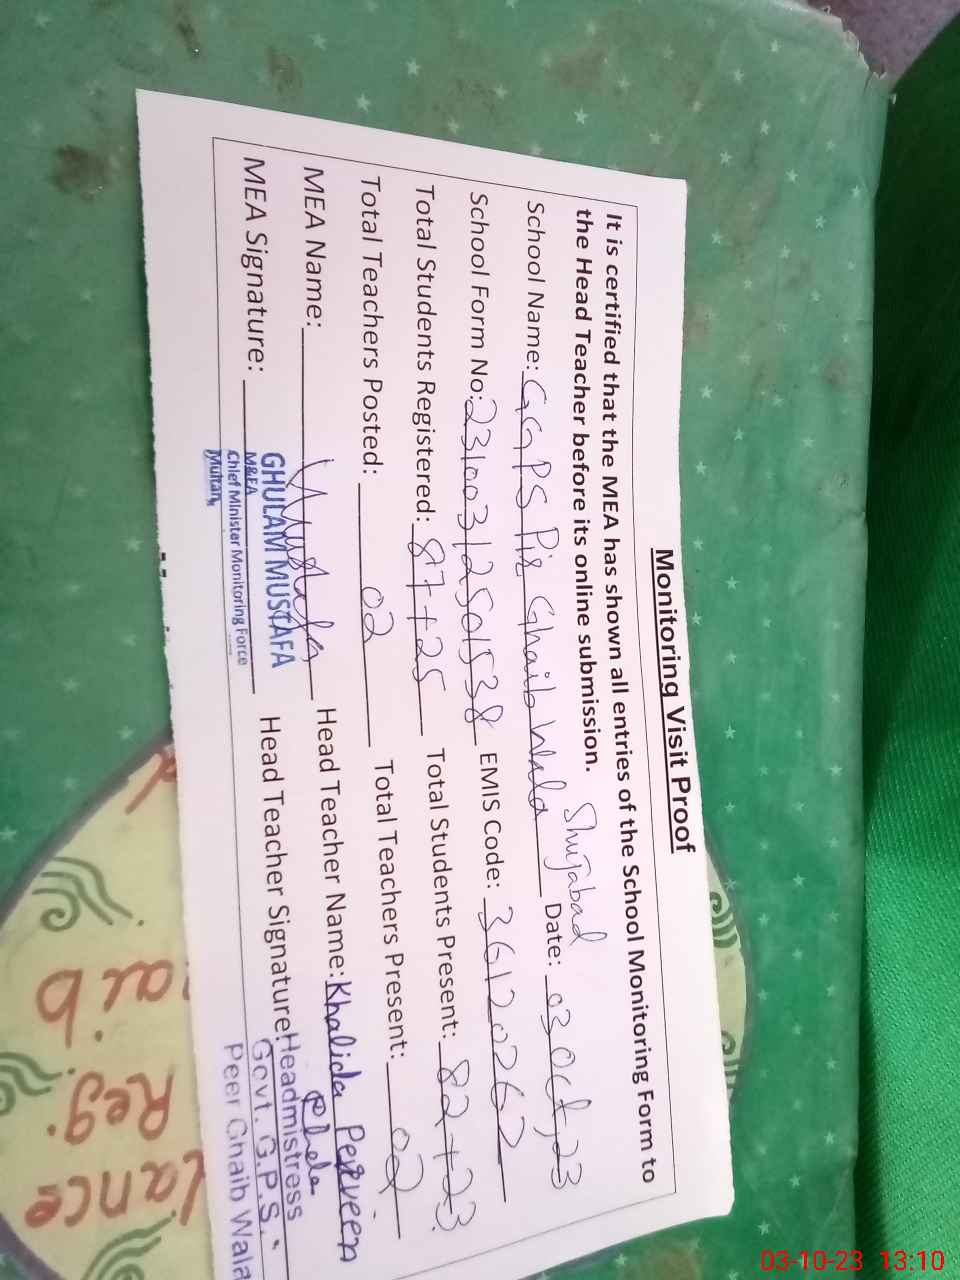 Monitoring Visit Proof
It is certified that the MEA has shown all entries of the School Monitoring Form to
the Head Teacher before its online submission.
Shujabad
School Name: GGPS Pir Ghaib Wala Date: 03 Oct, 23
School Form No: 23100312501538 EMIS Code: 36120262
Total Students Registered: 87+25 Total Students Present: 82+23
Total Teachers Posted: 02 Total Teachers Present: 02
MEA Name: Mustafa Head Teacher Name: Khalida Perveen
MEA Signature: Head Teacher Signature:
GHULAM MUSTAFA
M&EA
Chief Minister Monitoring Force
Multan
Headmistress
Govt. G.P.S.
Peer Ghaib Wala
aib
Reg.
03-10-23 13:10